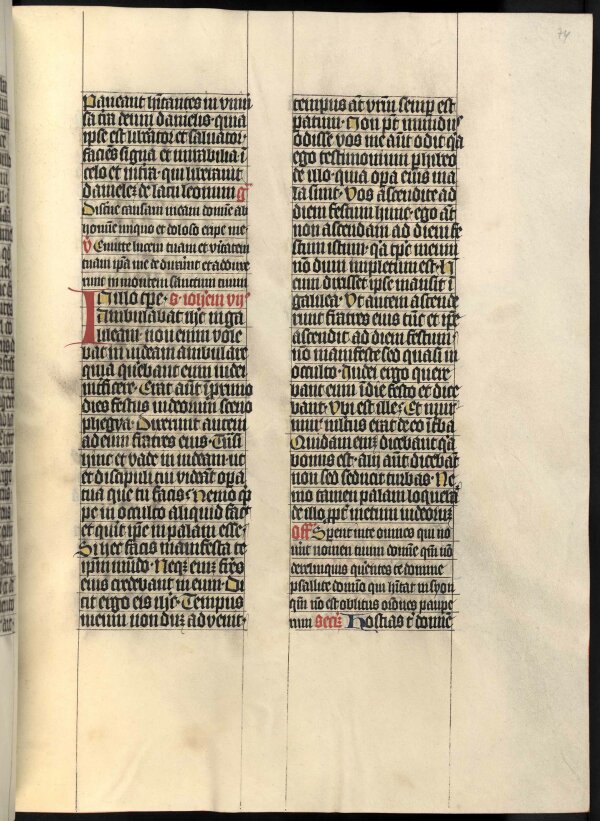 74
Paueant h̄itantes in vniū
sa t̄ra deum danielis· quia
ip̄e est lib̄ator et saluator·
faciēs signa et mirabilia ī
celo et in t̄ra· qui liberauit
danielez de lacu leonum g̃
Discerne causam meam domine ab
homine iniquo et doloso eripe me
v̄ Emitte lucem tuam et v̄itatem
tuam ip̄a me deduxer̄t et adduxe
runt in montem sanctum tuum
In illo tp̄e· s· ioh̄em vii
Ambulabat ih̄c in ga
lileam· non enim vole
bat in iudeam ambulare
quia querebant eum iudei
int̄ficere· Erat aūt ī proximo
dies festus iudeorum sceno
phegya· Dixerunt autem
ad eum fratres eius· Tūsi
hinc et vade in iudeam· ut
et discipuli tui videāt op̄a
tua que tu facis· Nemo q̄p
pe in occulto aliquid facit
et querit ip̄e in palam esse·
Si hec facis manifesta te
ip̄m mūdo· Neqz enim fr̄es
eius credebant in eum· Di
cit ergo eis ih̄c· Tempus
meum non duz aduenit·
tempus aūt vr̄m semp̄ est
paratum· Non pt̄ mundus
odisse vos me aūt odit q̄a
ego testimonium p̄hibeo
de illo· quia opera eius ma
la sunt· Vos ascendite ad
diem festum hunc· ego aūt
non ascendam ad diem fe
stum istum· q̄a tp̄e meum
nō dum impletum est· H
eum dixisset ip̄e mansit ī
galilea· Vt autem ascende
runt fratres eius tūc et ip̄e
ascendit ad diem festum·
nō manifeste sed quasi in
occulto· Iudei ergo quere
bant eum ī die festo et dice
bant· Vbi est ille· Et mur
mur multus erat de eo ī t̄ba
Quidam enim dicebant q̄a
bonus est· alii aūt dicebāt
non sed seducit turbas· Ne
mo tamen palam loquebat̄
de illo· ppt̄ metum iudeorum
off Sperent in te omnes qui no
uint nomen tuum domine qm̄ nō
derelinquis querētes te domine
psallite domino qui h̄itat in syon
qm̄ nō est oblitus or̄ones paupe
rum secr̄ Hostias t̄ domine